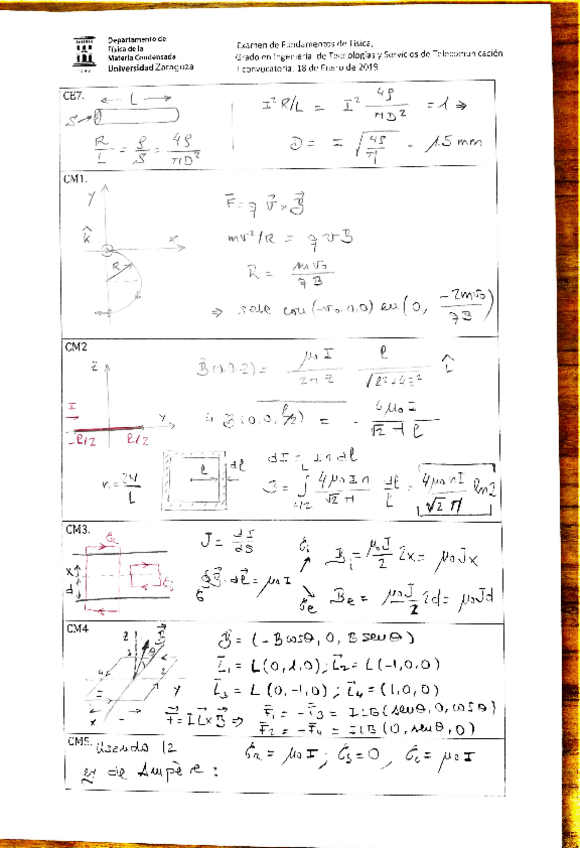 Departamento de
Física de la
Materia Condensada
Universidad Zaragoza
Examen de Fundamentos de Física,
Grado en Ingeniería de Tecnologías y Servicios de Telecomunicación
I convocatoria, 18 de Enero de 2019
CB7.
L
S
R/L = ρ/S = 4ρ/πD²
I² R/L = I² 4ρ/πD² = 1 ⇒
D = I √(4ρ/π) = 1.5 mm
CM1.
y
k̂
x
R
F⃗ = q v⃗ × B⃗
mv²/R = q v B
R = mv₀/qB
⇒ sale con (-v₀,0,0) en (0, -2mv₀/qB)
CM2
z
I
y
-l/2 l/2
B(0,0,z) = μ₀I/2πz l/√(l²+4z²) î
4 B(0,0,l/2) = 4μ₀I/√2 π l
n = 2N/L
l
dl
dI = I n dl
B = ∫ L/2 L 4μ₀In/√2 π dl/l = 4μ₀nI/√2 π ln2
CM3.
Ce
x
d
Ci
J = dI/dS
∮ B⃗·dl⃗ = μ₀I
C
Ci
Bi = μ₀J/2 2x = μ₀Jx
Ce
Be = μ₀J/2 2d = μ₀Jd
CM4
z
B⃗
θ
y
x
B⃗ = (-B cosθ, 0, B senθ)
L⃗₁ = L(0,1,0); L⃗₂ = L(-1,0,0)
L⃗₃ = L(0,-1,0); L⃗₄ = (1,0,0)
F⃗ = I L⃗×B⃗ ⇒ F⃗₁ = -F⃗₃ = ILB(senθ,0,cosθ)
F⃗₂ = -F⃗₄ = ILB(0,senθ,0)
CM5. Usando la
ley de Ampère:
Ca = μ₀I; Cb = 0, Cc = μ₀I